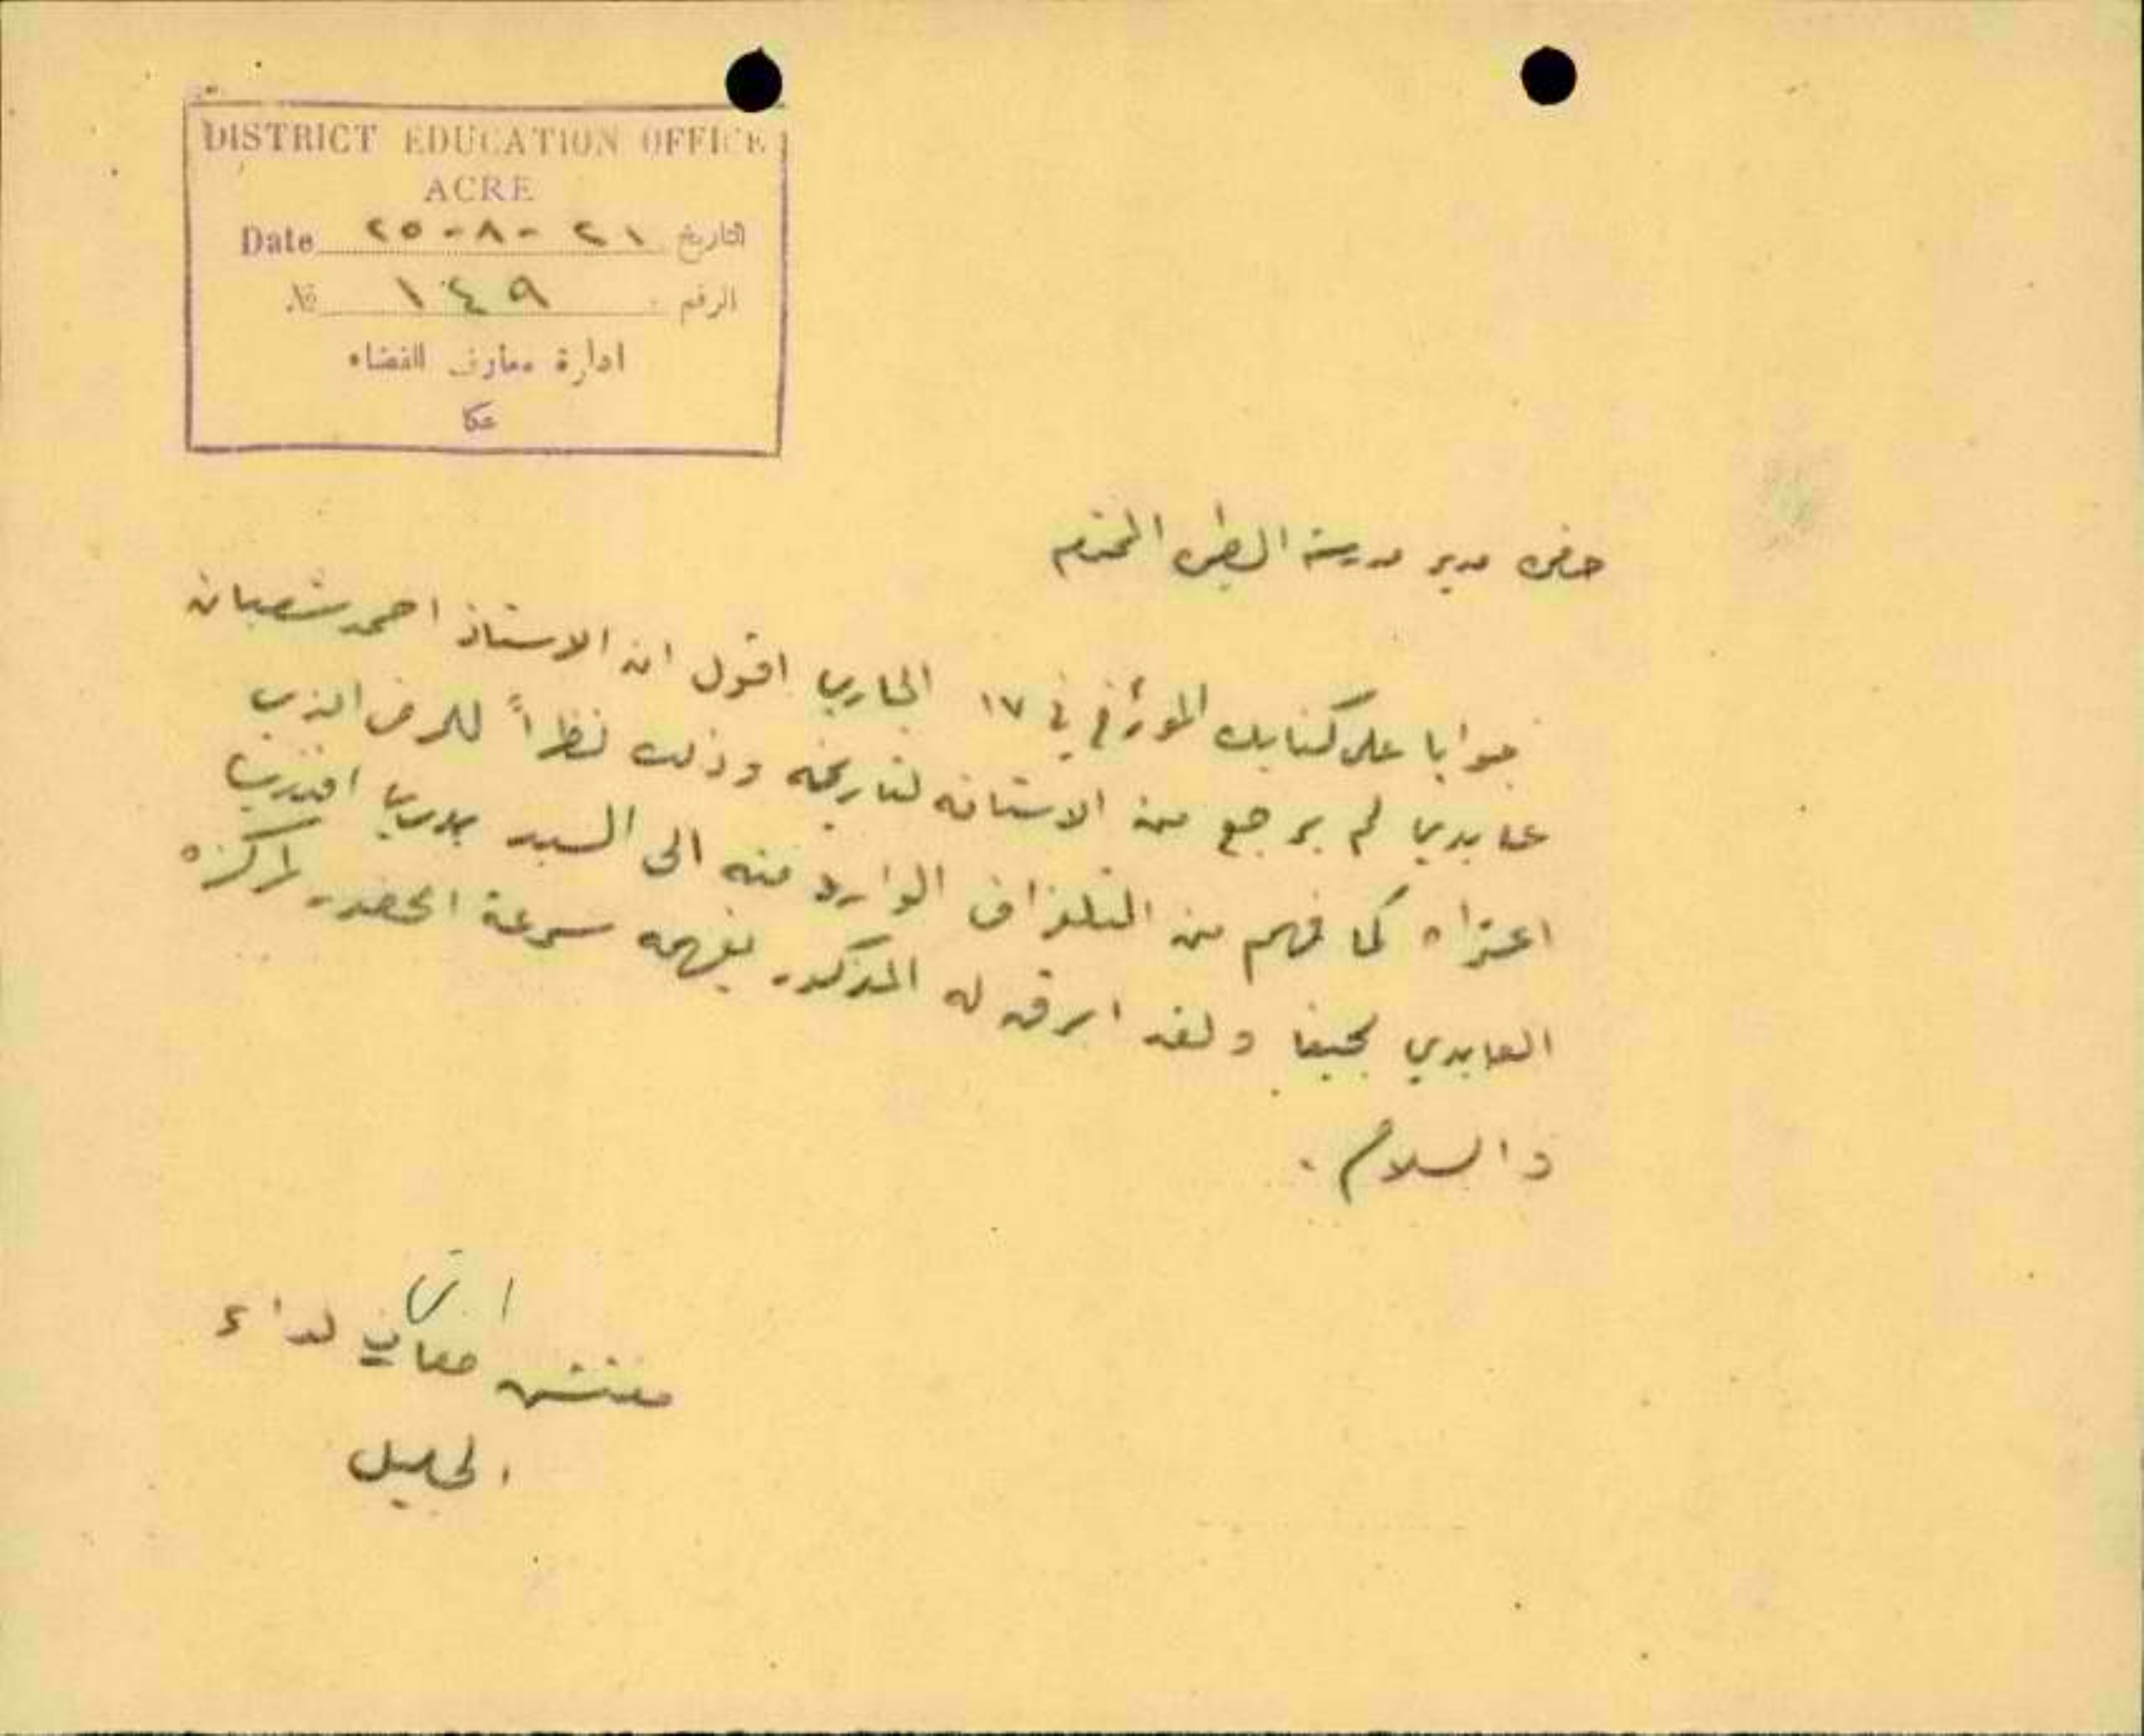 DISTRICT EDUCATION OFFICE
ACRE
Date ٢٥-٨-٢١ التاريخ
№ ١٤٩ الرقم
ادارة معارف القضاء
عكا
حضرة مدير مدرسة المحترم
جوابا على كتابك المؤرخ في ١٧ الجاري اقول ان الاستاذ احمد شعبان
عابدي لم يرجع من الاستانه لتاريخه وذلك نظراً للمرض الذي
اعتراه كما فهم من التلغراف الوارد منه الى السيد بدري افندي
العابدي بحيفا ولقد ابرق له المذكور يفهمه سرعة الحضور لمركزه
والسلام.
مفتش معارف لواء
الجليل